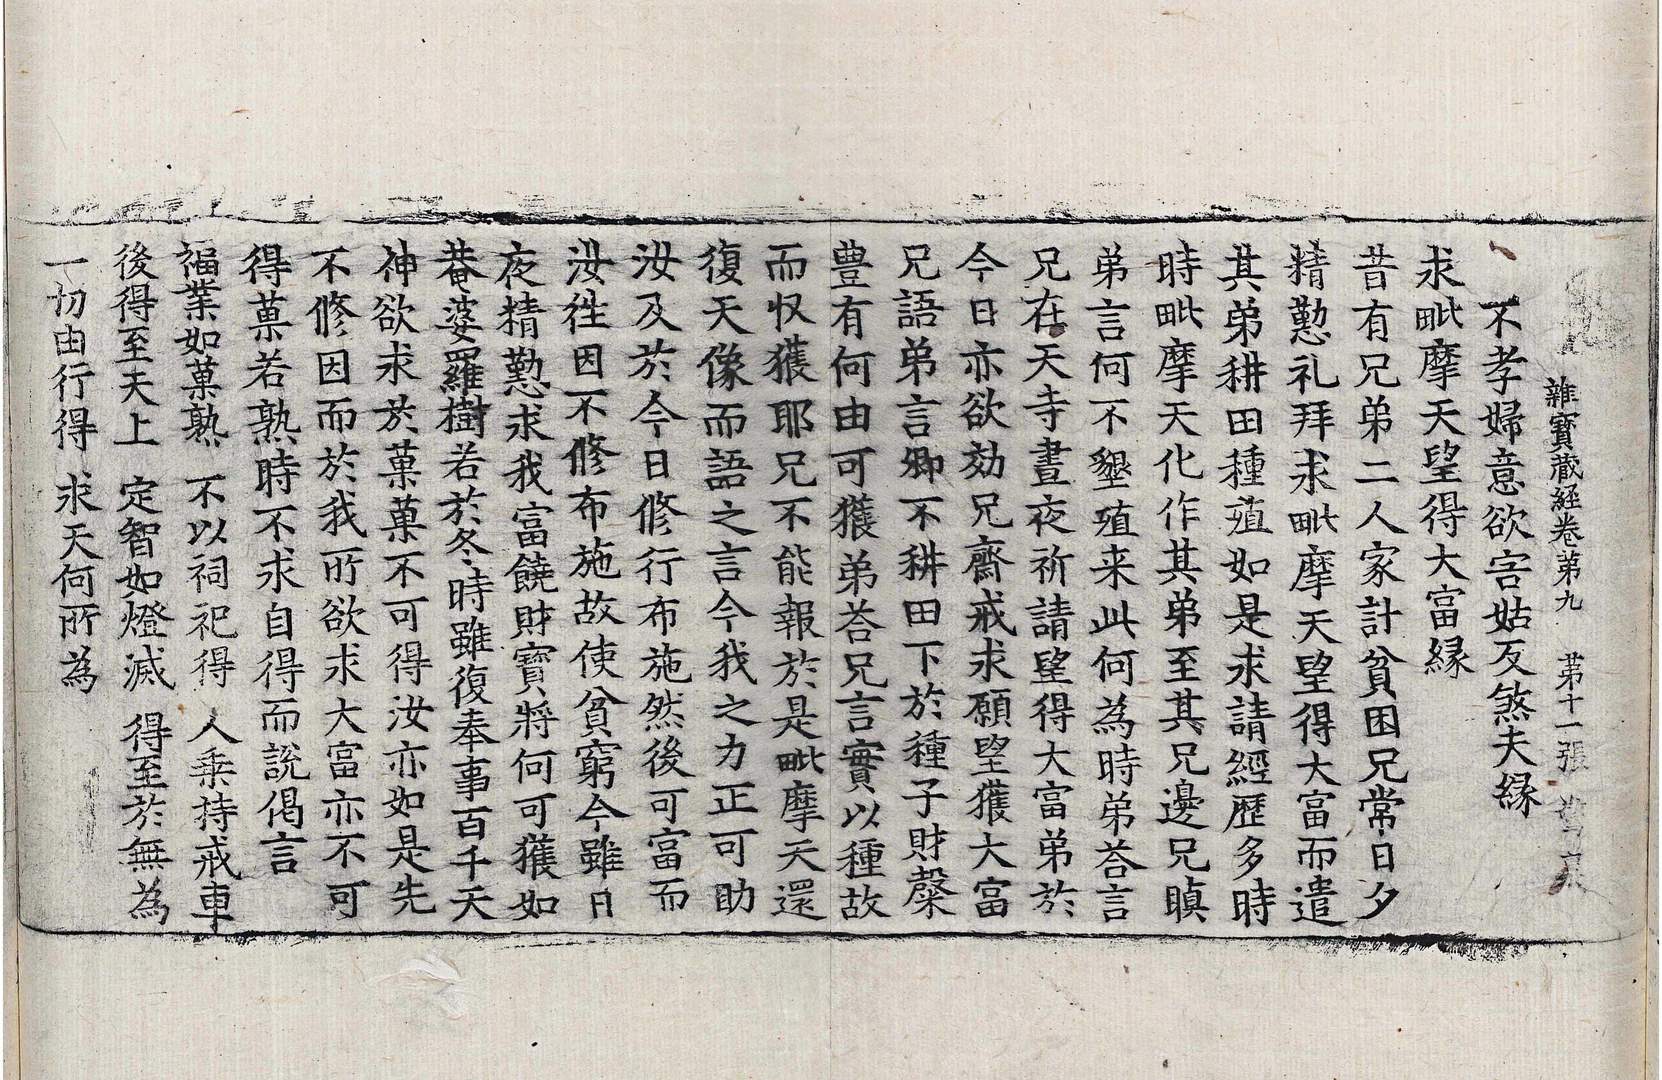 雜寶蔵經卷第九　第十一張
不孝婦意欲害姑反煞夫縁
求毗摩天望得大富縁
昔有兄弟二人家計貧困兄常日夕
精懃礼拜求毗摩天望得大富而遣
其弟耕田種殖如是求請經歷多時
時毗摩天化作其弟至其兄邊兄瞋
弟言何不墾殖来此何為時弟荅言
兄在天寺晝夜祈請望得大富弟於
今日亦欲効兄齋戒求願望獲大富
兄語弟言卿不耕田下於種子財榖
豊有何由可獲弟荅兄言實以種故
而収獲耶兄不能報於是毗摩天還
復天像而語之言今我之力正可助
汝及於今日修行布施然後可富而
汝徃因不修布施故使貧窮今雖日
夜精懃求我富饒財寶將何可獲如
菴婆羅樹若於冬時雖復奉事百千天
神欲求於菓菓不可得汝亦如是先
不修因而於我所欲求大富亦不可
得菓若熟時不求自得而說偈言
福業如菓熟　不以祠祀得　人乘持戒車
後得至天上　定智如燈滅　得至於無為
一切由行得　求天何所為